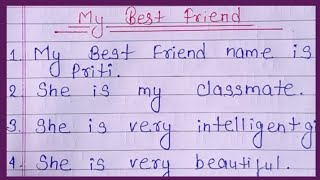 My Best Friend
1. My Best Friend name is
Priti.
2. She is my classmate.
3. She is very intelligent gi
4. She is very beautiful.